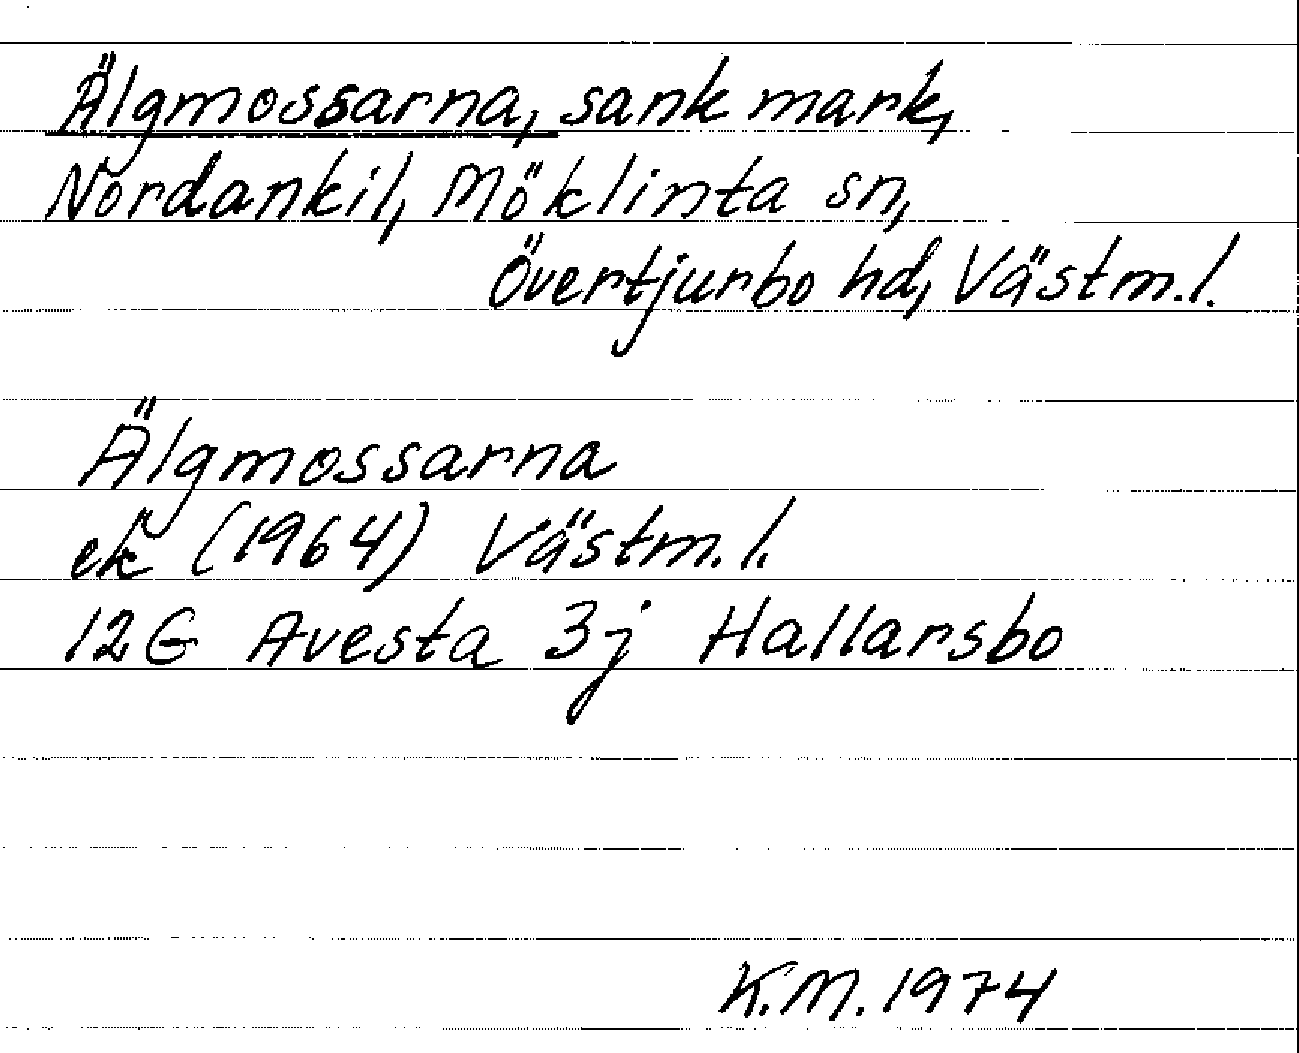 Älgmossarna, sank mark,
Nordankil, Möklinta sn,
Övertjurbo hd, Västm.l.
Älgmossarna
ek (1964) Västm.l.
12G Avesta 3j Hallarsbo
K.M. 1974